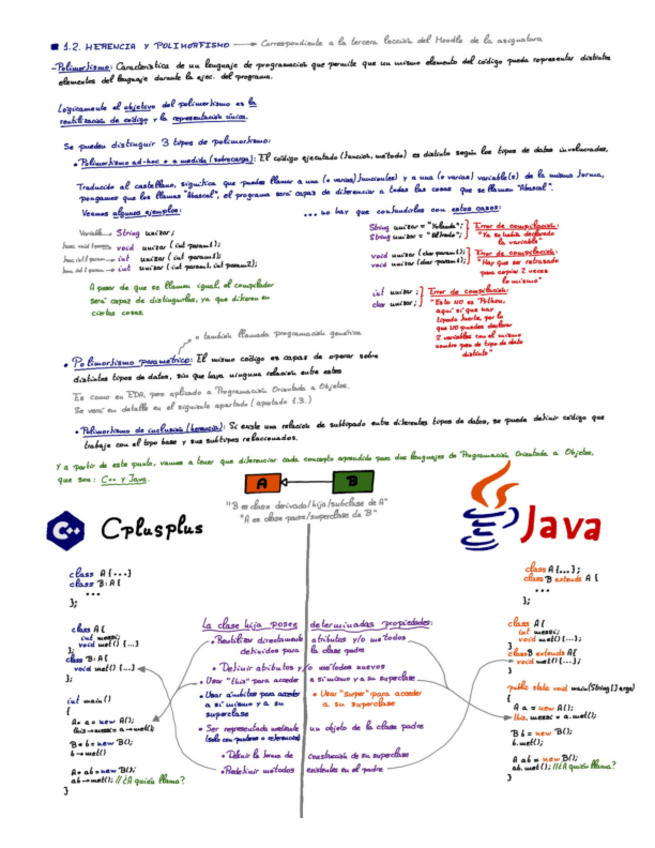 1.2. HERENCIA Y POLIMORFISMO → Correspondiente a la tercera lección del Moodle de la asignatura
- Polimorfismo: Característica de un lenguaje de programación que permite que un mismo elemento del código pueda representar distintos
elementos del lenguaje durante la ejec. del programa.
Lógicamente el objetivo del polimorfismo es la
reutilización de código y la representación única.
Se pueden distinguir 3 tipos de polimorfismo:
• Polimorfismo ad-hoc o a medida (sobrecarga): El código ejecutado (función, método) es distinto según los tipos de datos involucrados.
Traducido al castellano, significa que puedes llamar a una (o varias) función(es) y a una (o varias) variable(s) de la misma forma,
pongamos que los llamas "Abascal", el programa será capaz de diferenciar a todas las cosas que se llamen "Abascal".
Veamos algunos ejemplos:
... no hay que confundirlos con estos casos:
Variable → String unizar;
void unizar (int param1);
int unizar (int param1);
int unizar (int param1, int param2);
A pesar de que se llamen igual, el compilador
será capaz de distinguirlos, ya que difieren en
ciertas cosas
String unizar = "Yolanda";
String unizar = "Alfredo";
Error de compilación:
"Ya se había declarado
la variable"
void unizar (char param1);
void unizar (char param1);
Error de compilación:
"Hay que ser retrasado
para copiar 2 veces
lo mismo"
int unizar;
char unizar;
Error de compilación:
"Esto NO es Python,
aquí sí que hay
tipado fuerte, por lo
que NO puedes declarar
2 variables con el mismo
nombre pero de tipo de dato
distinto"
o también llamada programación genérica
• Polimorfismo paramétrico: El mismo código es capaz de operar sobre
distintos tipos de datos, sin que haya ninguna relación entre estos
Es como en EDA, pero aplicado a Programación Orientada a Objetos.
Se verá en detalle en el siguiente apartado (apartado 1.3.)
• Polimorfismo de inclusión (herencia): Si existe una relación de subtipado entre diferentes tipos de datos, se puede definir código que
trabaje con el tipo base y sus subtipos relacionados.
Y a partir de este punto, vamos a tener que diferenciar cada concepto aprendido para dos lenguajes de Programación Orientada a Objetos,
que son: C++ y Java.
A B
"B es clase derivada/hija/subclase de A"
"A es clase padre/superclase de B"
C++ Cplusplus
Java
class A {...}
class B: A {
...
};
class A {
int messi;
void met() {...}
};
class B: A {
void met() {...}
};
int main()
{
A* a = new A();
this→messi = a→met();
B* b = new B();
b→met()
A* ab = new B();
ab→met(); // ¿A quién llama?
}
La clase hija posee determinadas propiedades:
• Reutilizar directamente atributos y/o métodos
definidos para la clase padre
• Definir atributos y/o métodos nuevos
• Usar "this" para acceder a sí mismo y a su superclase
• Usar ámbitos para acceder
a sí mismo y a su
superclase
• Usar "super" para acceder
a su superclase
• Ser representada mediante un objeto de la clase padre
(solo con punteros o referencias)
• Definir la forma de construcción de su superclase
• Redefinir métodos existentes en el padre
class A {...};
class B extends A {
...
};
class A {
int messi;
void met() {...};
}
class B extends A {
void met() {...};
}
public static void main(String[] args)
{
A a = new A();
this.messi = a.met();
B b = new B();
b.met();
A ab = new B();
ab.met(); // ¿A quién llama?
}